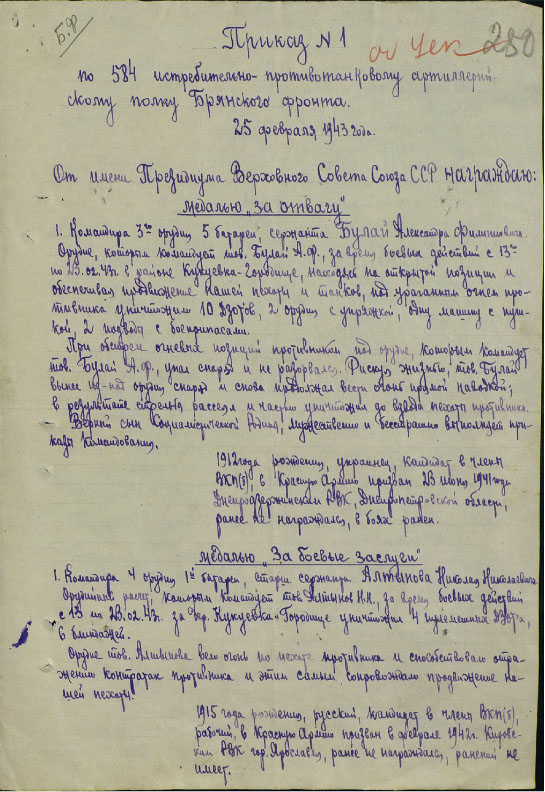 Б.Ф
250
Приказ N 1
по 584 истребительно-противотанковому артиллерий-
скому полку Брянского фронта.
25 февраля 1943 года.
От имени Президиума Верховного Совета Союза ССР награждаю:
медалью „за отвагу"
1. Командира 3го орудия 5 батареи, сержанта Булай Александра Филипповича.
Орудие, которым командует тов. Булай А.Ф., за время боевых действий с 13го
по 23.02.43г. в районе Кукуевка-Городище, находясь на открытой позиции и
обеспечивая продвижение нашей пехоты и танков, под ураганным огнем про-
тивника уничтожило 10 дзотов, 2 орудия с упряжкой, одну машину с пуш-
кой, 2 подводы с боеприпасами.
При обстреле огневых позиций противником под орудие, которым командует
тов. Булай А.Ф., упал снаряд и не разорвался. Рискуя жизнью, тов. Булай
вынес из-под орудия снаряд и снова продолжал вести огонь прямой наводкой;
в результате стрельбы рассеял и частью уничтожил до взвода пехоты противника.
Верный сын Социалистической Родины, мужественно и бесстрашно выполняет при-
казы командования.
1912 года рождения, украинец, кандидат в члены
ВКП(б), в Красную Армию призван 23 июня 1941 года
Днепродзержинским РВК, Днепропетровской области,
ранее не награждался, в боях ранен.
медалью „За боевые заслуги"
1. Командира 4 орудия 1й батареи, старш. сержанта Алтынова Николая Николаевича.
Орудийный расчет, которым командует тов. Алтынов Н.Н., за время боевых действий
с 13 по 23.02.43г. за дер. Кукуевка-Городище уничтожил 4 пулеметных дзота,
6 блиндажей.
Орудие тов. Алтынова вело огонь по пехоте противника и способствовало отра-
жению контратак противника и этим самым сопровождало продвижение на-
шей пехоты.
1915 года рождения, русский, кандидат в члены ВКП(б),
рабочий, в Красную Армию призван в феврале 1942г. Киров-
ским РВК гор. Ярославля, ранее не награждался, ранений не
имеет.